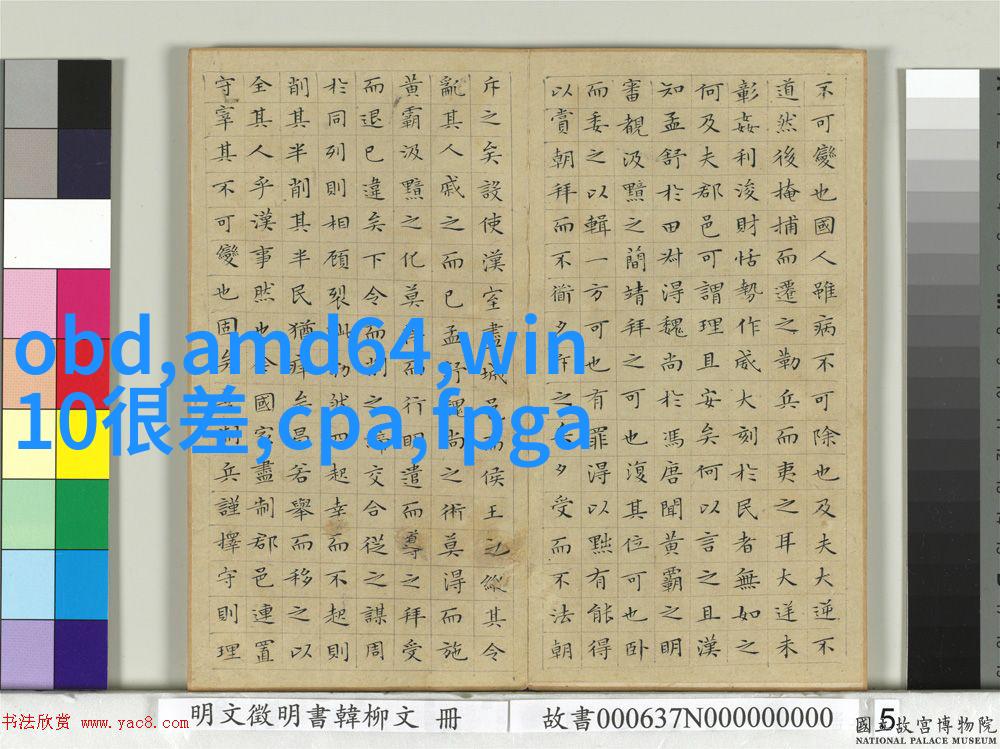 不可變也國人雖病不可除也及夫大逆不
道然後掩捕而遷之勒兵而夷之耳大逆未
彰姦利浚財怙勢作威大刻於民者無如之
何及夫郡邑可謂理且安矣何以言之且漢
知孟舒於田叔得魏尚於馮唐聞黃霸之明
審覩汲黯之簡靖拜之可也復其位可也臥
而委之以輯一方可也有罪得以黜有能得
以賞朝拜而不衟夕斥之矣夕受而不法朝
斥之矣設使漢室盡城邑而侯王之縱其令
亂其人戚之而已孟舒魏尚之術莫得而施
黃霸汲黯之化莫得而行明遣而導之拜受
而退已違矣下令而削之締交合從之謀周
於同列則相顧裂眦勃然而起幸而不起則
削其半削其半民猶瘁矣曷若舉而移之以
全其人乎漢事然也今國家盡制郡邑連置
守宰其不可變也固矣制兵謹擇守則理
obd,amd64,win
10很差,cpa,fpga
明文徵明書韓柳文 冊
故書000637N000000000
5
國立故宮博物院
NATIONAL PALACE MUSEUM
书法欣赏 www.yac8.com